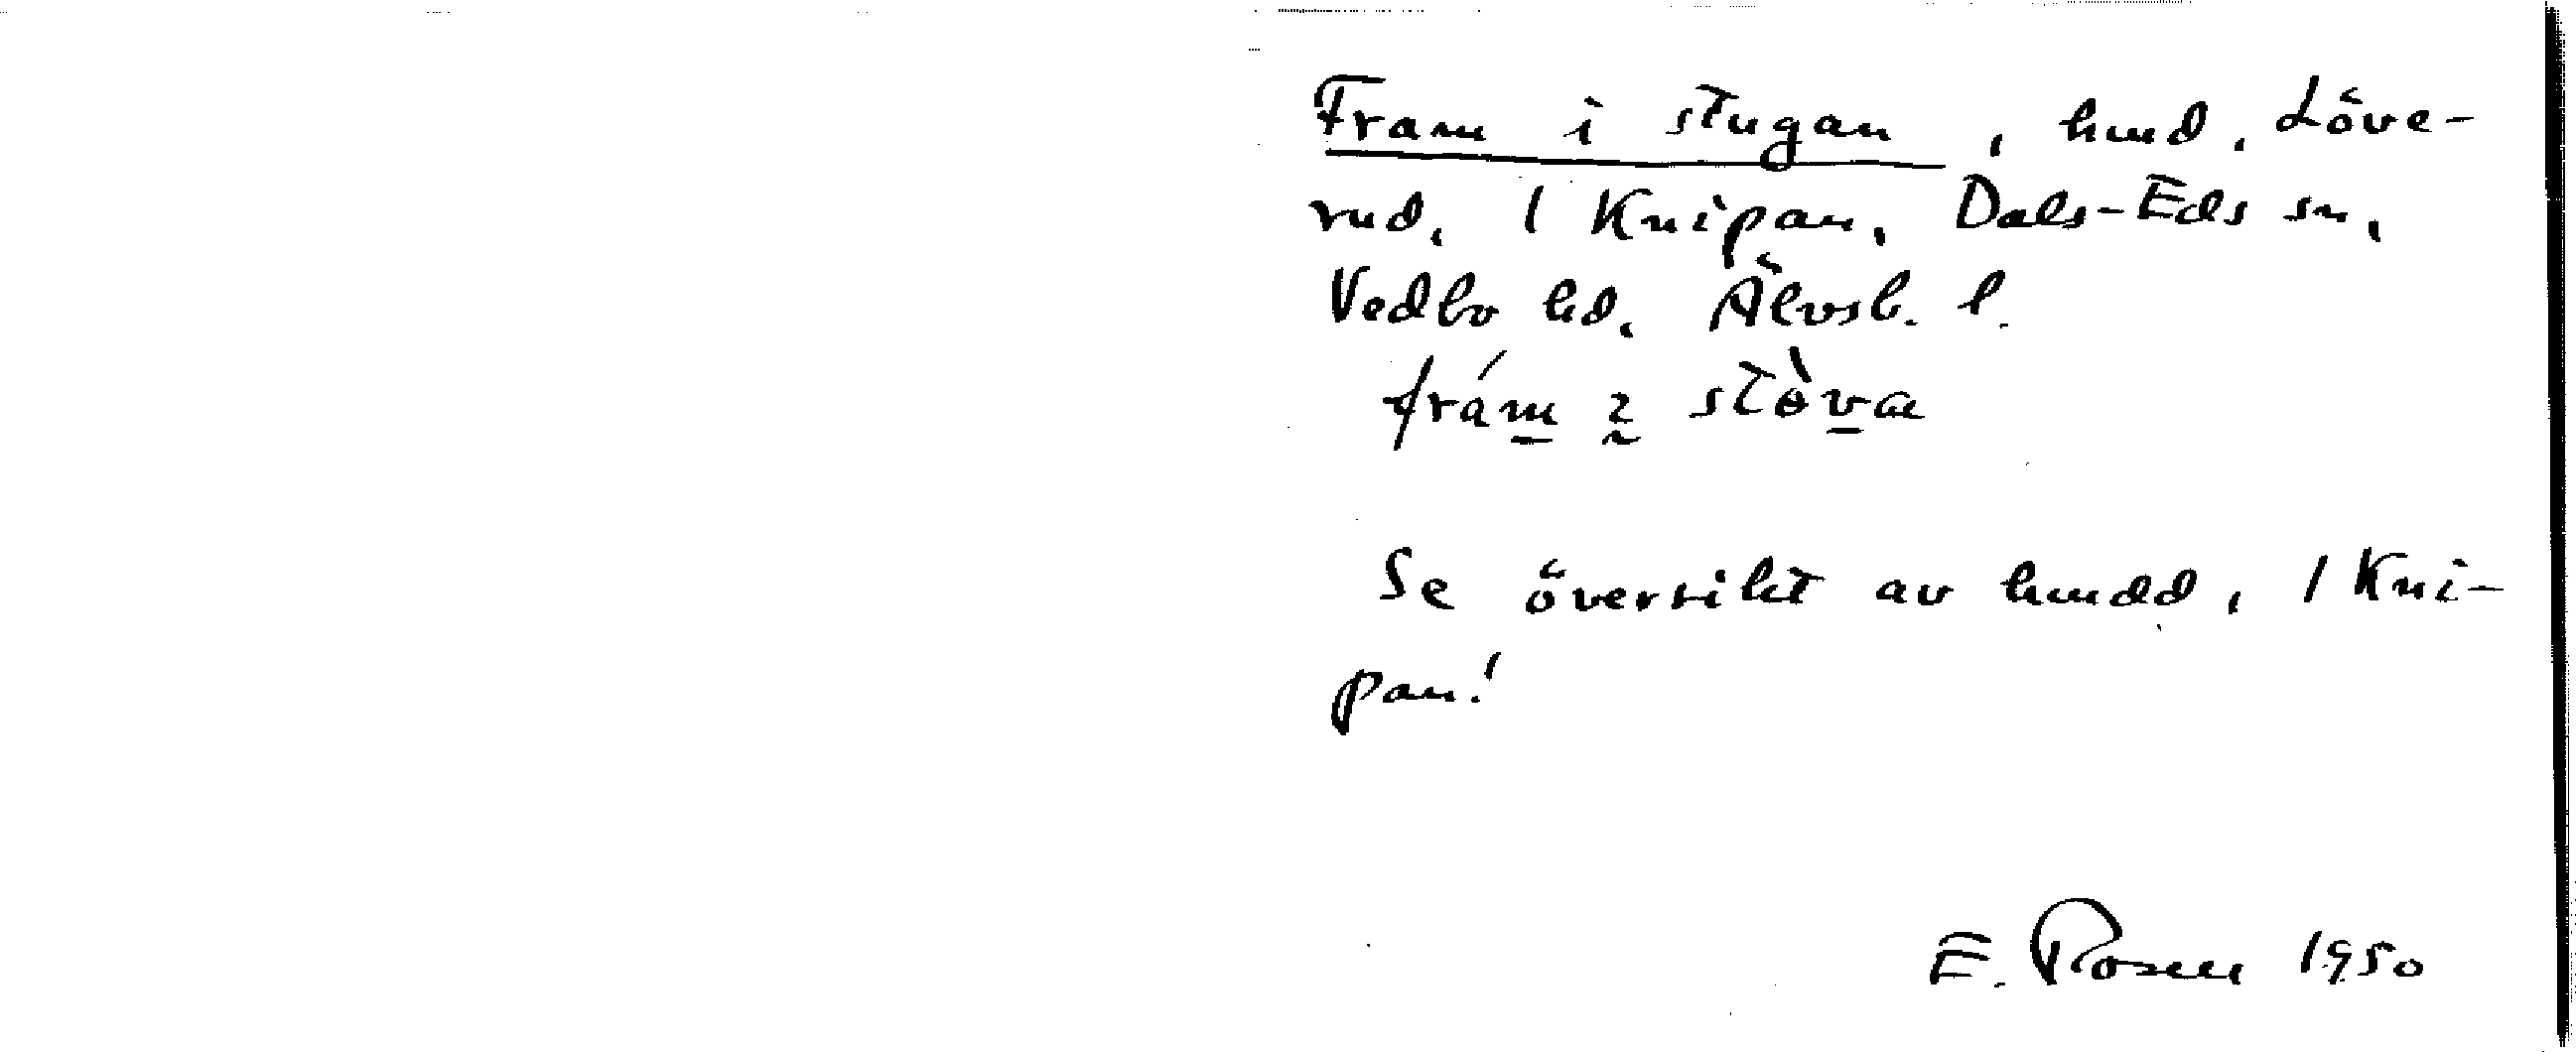 Fram i stugan, hmd. Löve-
rud, 1 Knipan, Dals-Eds sn,
Vedbo hd, Älvsb. l.
frám ı stòva
Se översikt av hmdd, 1 Kni-
pan!
E. Rosen 1950